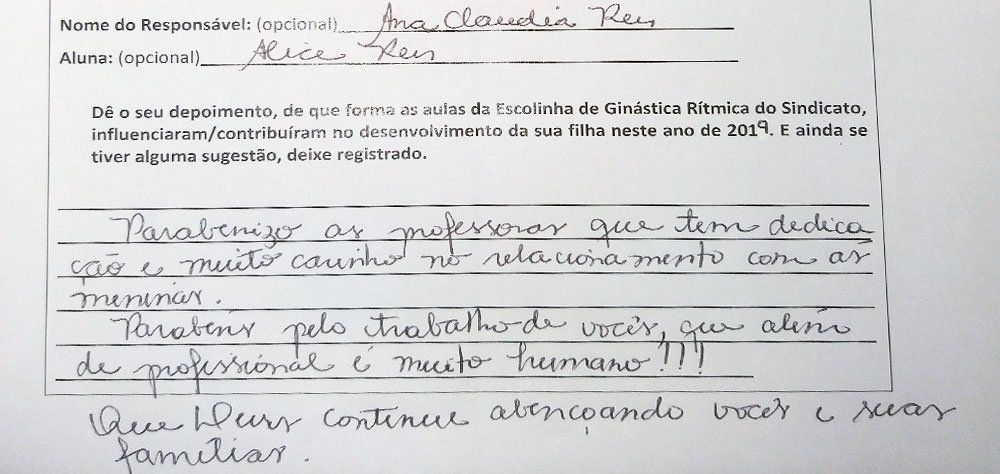 Nome do Responsável: (opcional) Ana Claudia Reis
Aluna: (opcional) Alice Reis
Dê o seu depoimento, de que forma as aulas da Escolinha de Ginástica Rítmica do Sindicato,
influenciaram/contribuíram no desenvolvimento da sua filha neste ano de 2019. E ainda se
tiver alguma sugestão, deixe registrado.
Parabenizo as professoras que tem dedica
ção e muito carinho no relacionamento com as
meninas.
Parabens pelo trabalho de vocês, que além
de profissional é muito humano!!!
Que Deus continue abençoando vocês e suas
famílias.